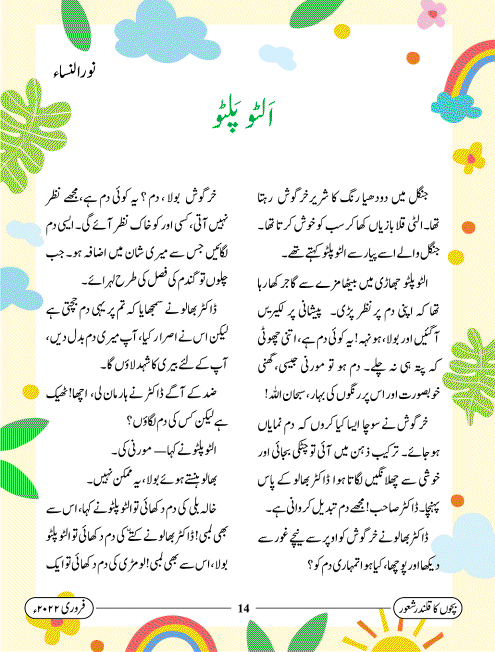 نورالنساء
اَلٹو پَلٹو
جنگل میں دودھیا رنگ کا شریر خرگوش رہتا
تھا۔ الٹی قلابازیاں کھا کر سب کو خوش کرتا تھا۔
جنگل والے اسے پیار سے الٹو پلٹو کہتے تھے۔
الٹو پلٹو جھاڑی میں بیٹھا مزے سے گاجر کھا رہا
تھا کہ اپنی دم پر نظر پڑی۔ پیشانی پر لکیریں
آگئیں اور بولا، ہونہہ! یہ کوئی دم ہے، اتنی چھوٹی
کہ پتہ ہی نہ چلے۔ دم ہو تو مورنی جیسی، گھنی
خوبصورت اور اس پر رنگوں کی بہار، سبحان اللہ!
خرگوش نے سوچا ایسا کیا کروں کہ دم نمایاں
ہو جائے۔ ترکیب ذہن میں آئی تو چٹکی بجائی اور
خوشی سے چھلانگیں لگاتا ہوا ڈاکٹر بھالو کے پاس
پہنچا۔ ڈاکٹر صاحب! مجھے دم تبدیل کروانی ہے۔
ڈاکٹر بھالو نے خرگوش کو اوپر سے نیچے غور سے
دیکھا اور پوچھا، کیا ہوا تمہاری دم کو؟
خرگوش بولا، دم؟ یہ کوئی دم ہے، مجھے نظر
نہیں آتی، کسی اور کو خاک نظر آئے گی۔ ایسی دم
لگائیں جس سے میری شان میں اضافہ ہو۔ جب
چلوں تو گندم کی فصل کی طرح لہرائے۔
ڈاکٹر بھالو نے سمجھایا کہ تم پر یہی دم جچتی ہے
لیکن اس نے اصرار کیا، آپ میری دم بدل دیں،
آپ کے لئے بیری کا شہد لاؤں گا۔
ضد کے آگے ڈاکٹر نے ہار مان لی، اچھا! ٹھیک
ہے لیکن کس کی دم لگاؤں؟
الٹو پلٹو نے کہا— مورنی کی۔
بھالو ہنستے ہوئے بولا، یہ ممکن نہیں۔
خالہ بلی کی دم دکھائی تو الٹو پلٹو نے کہا، اس سے
بھی لمبی! ڈاکٹر بھالو نے کتّے کی دم دکھائی تو الٹو پلٹو
بولا، اس سے بھی لمبی! لومڑی کی دم دکھائی تو ایک
بچوں کا قلندر شعور
14
فروری ۲۰۲۲ء